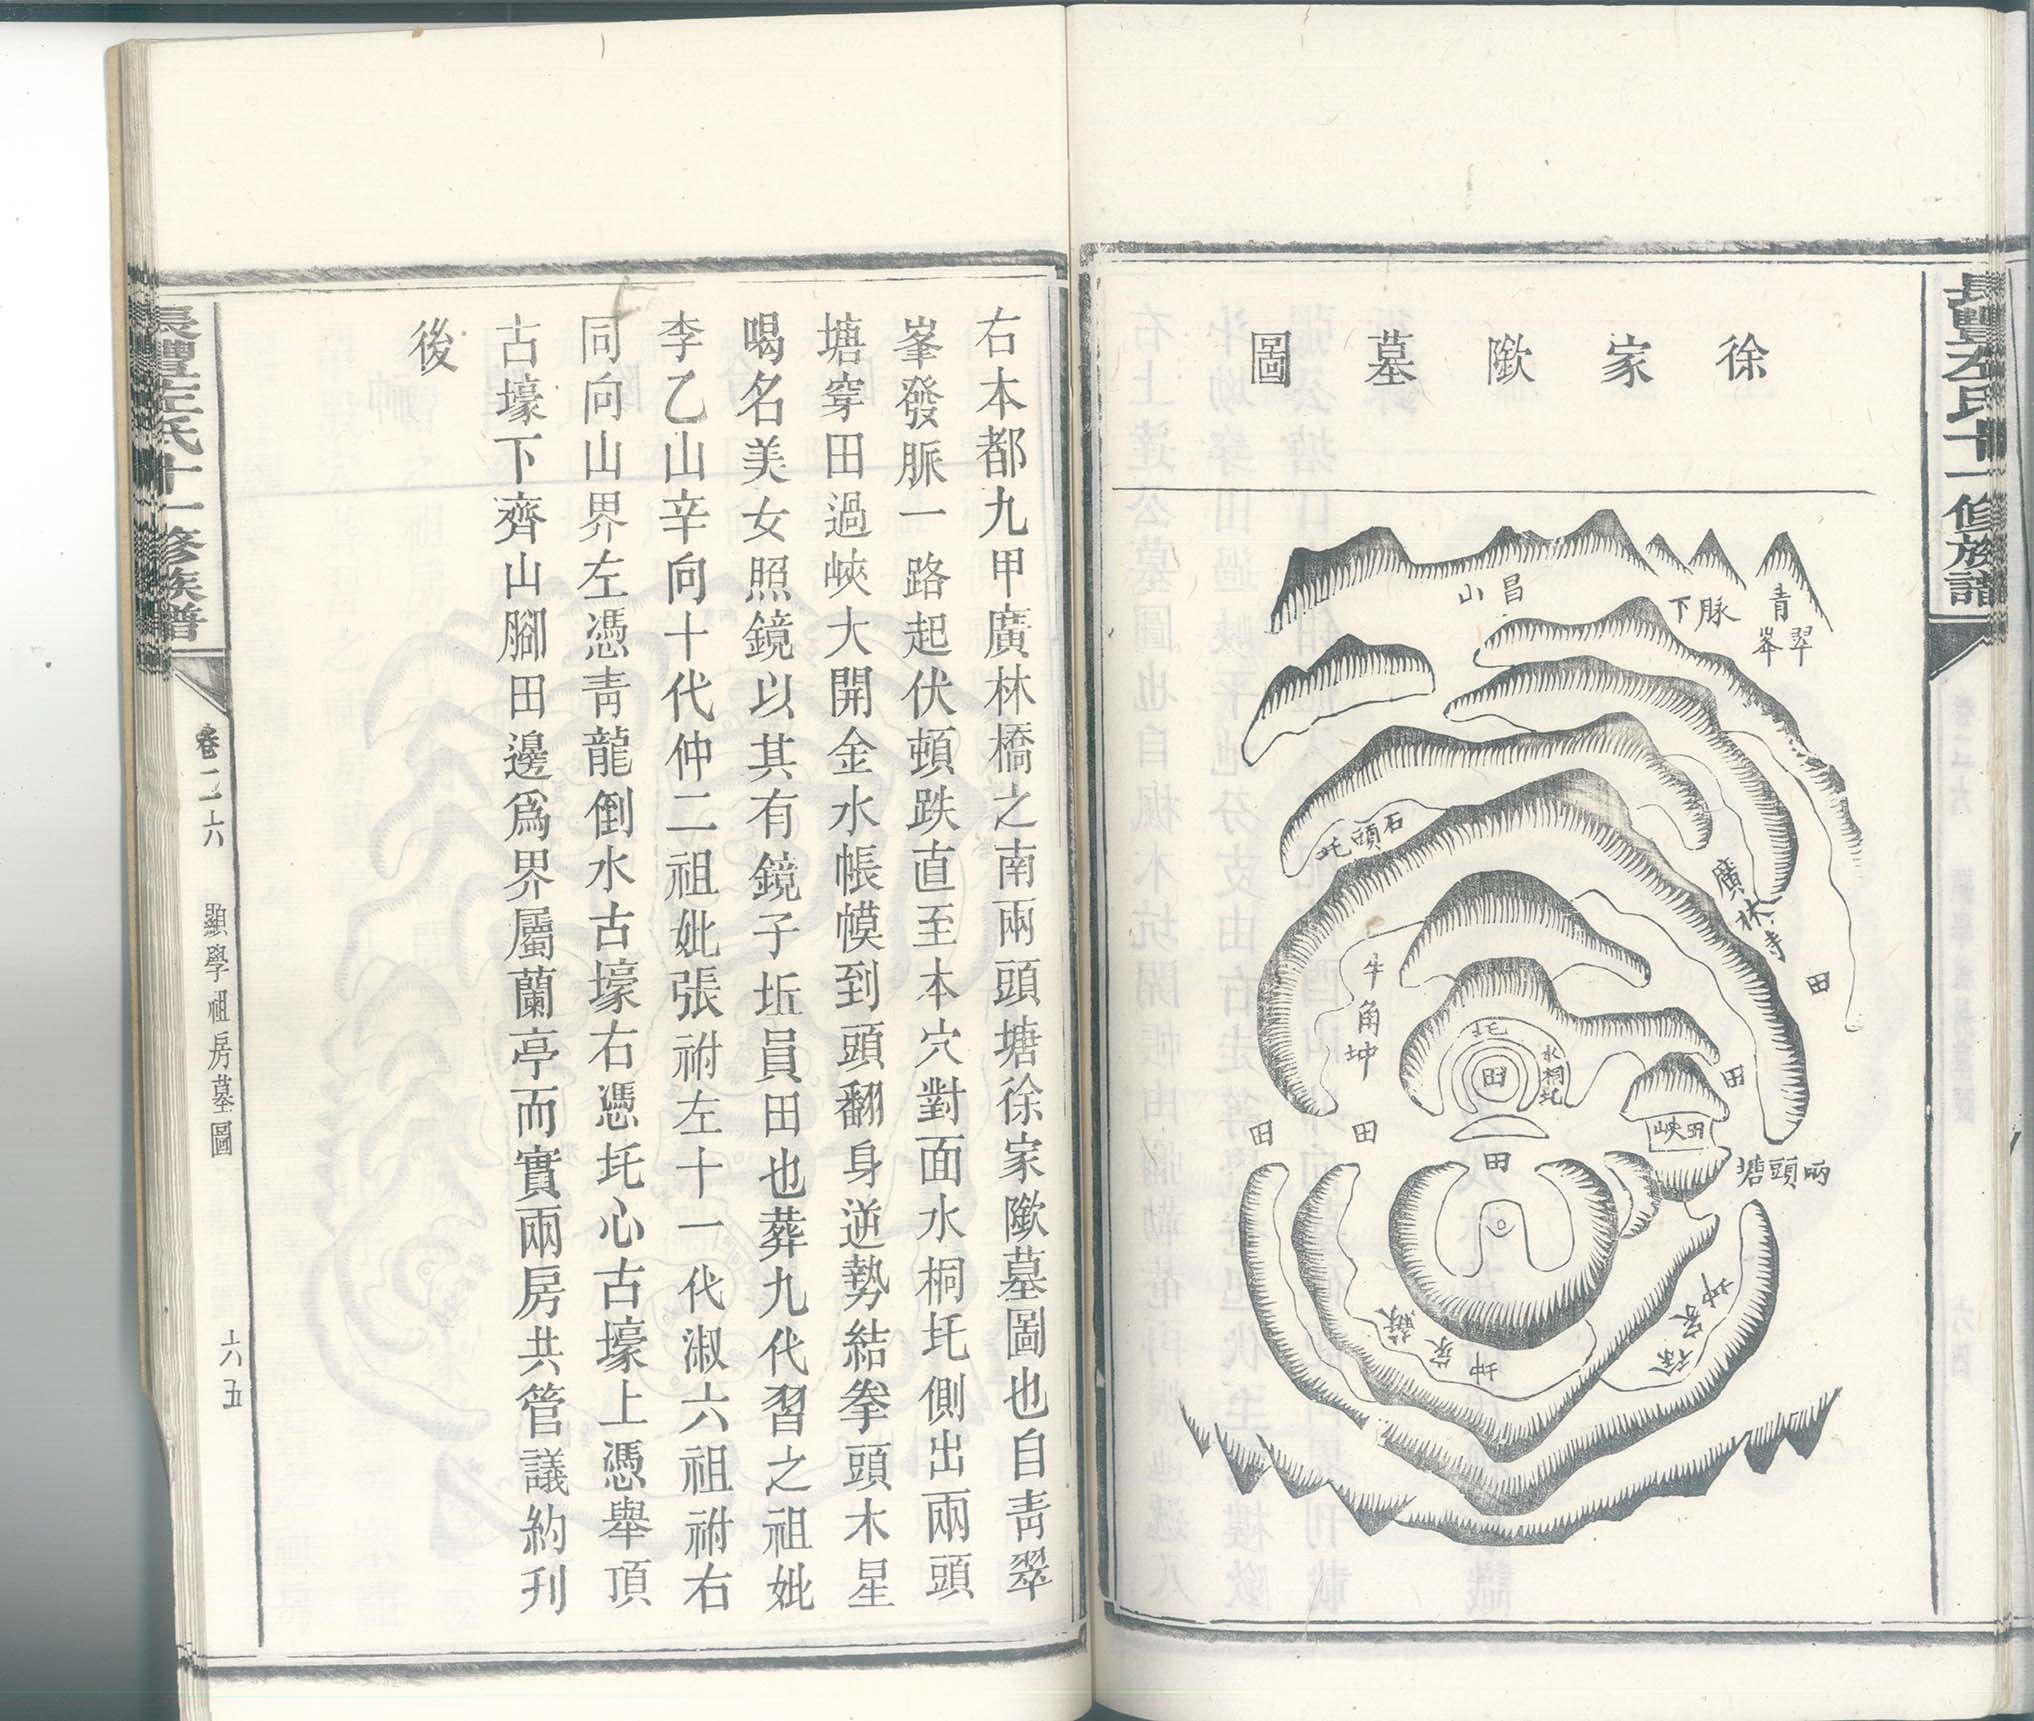 長豐左氏十一修族譜
徐家隞墓圖
青翠峯
脉下
昌山
石頭坨
廣林寺
田
牛角坤
坨
水桐坨
田
田
田峽
田
田
田
兩頭塘
徐家坤
蘇家坤
右本都九甲廣林橋之南兩頭塘徐家隞墓圖也自青翠
峯發脈一路起伏頓跌直至本穴對面水桐坨側出兩頭
塘穿田過峽大開金水帳幙到頭翻身逆勢結拳頭木星
喝名美女照鏡以其有鏡子坵員田也葬九代習之祖妣
李乙山辛向十代仲二祖妣張祔左十一代淑六祖祔右
同向山界左憑青龍倒水古壕右憑坨心古壕上憑舉頂
古壕下齊山腳田邊爲界屬蘭亭而實兩房共管議約刋
後
長豐左氏十一修族譜
卷二六
顯學祖房墓圖
六五